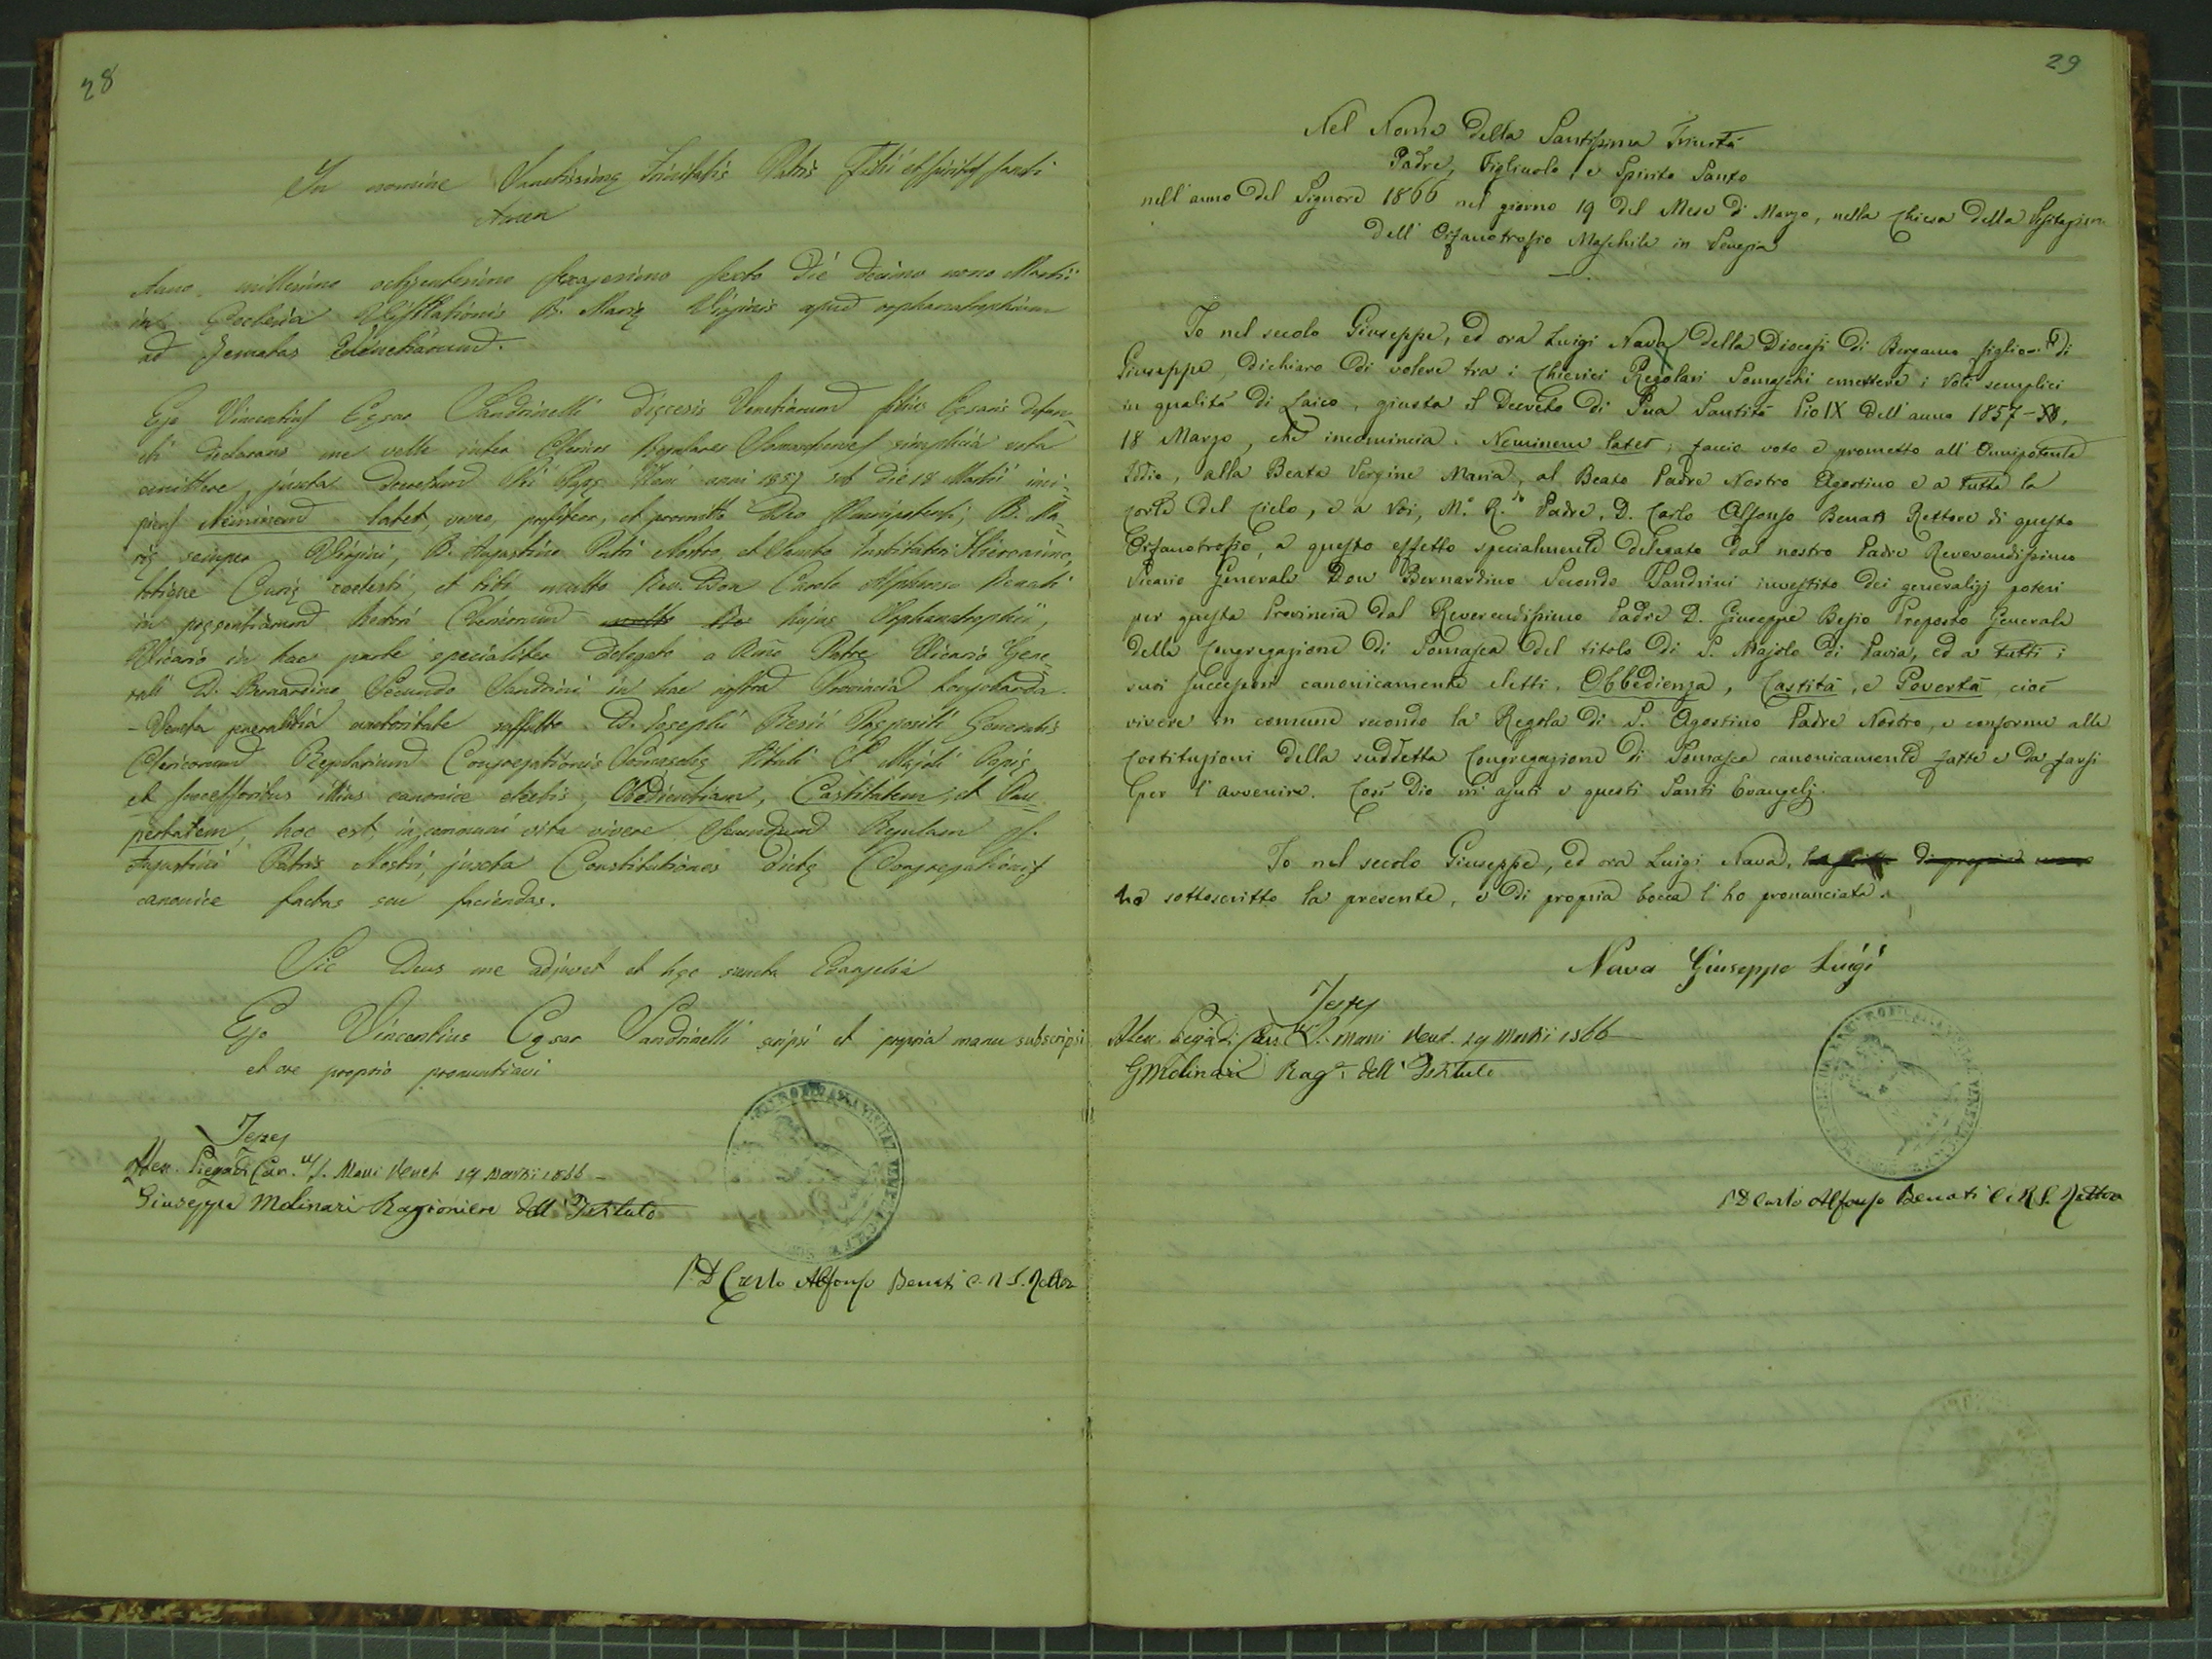 28
In nomine Sanctissimę Trinitatis Patris Filii et Spiritus Sancti
Amen
Anno millesimo octigentesimo sexagesimo sexto die decimo nono Martii
in Ecclesia Visitationis B. Marię Virginis apud orphanotrophium
ad Jesuatas Venetiarum.
Ego Vincentius Cęsar Sandrinelli Dięcesis Venetiarum filius Cęsaris defun-
cti declarans me velle inter Clericos Regulares Somaschenses simplicia vota
emittere, juxta Decretum Pii Papę Noni anni 1857 sub die 18 Martii inci-
piens Neminem latet, voveo, profiteor, et promitto Deo Omnipotenti, B. Ma-
rię semper Virgini, B. Augustino Patri Nostro, et Sancto Institutori Hieronimo,
totique Curię coelesti, et tibi multo Rev. Don Carolo Alphonso Benati
in pręsentiarum Rectori Clericorum multo Rev hujus Orphanotrophii,
Vicario in hac parte specialiter delegato a Rmo Patre Vicario Gene-
rali D. Bernardino Secundo Sandrini in hac nostra Provincia Longobardo-
-Veneta generalitia auctoritate suffulto D. Josephi Besii Prępositi Generalis
Clericorum Regularium Congregationis Somaschę tituli S. Majoli Papię
et successoribus illius canonice electis, Obedientiam, Castitatem, et Pau-
pertatem, hoc est, in communi vita vivere secundum Regulam S.
Augustini Patris Nostri, juxta Constitutiones dictę Congregationis
canonice factas seu faciendas.
Sic Deus me adjuvet et hęc sancta Evangelia
Ego Vincentius Cęsar Sandrinelli scripsi et propria manu subscripsi
et ore proprio pronuntiavi
Testes
Alex. Piegadi Can. S. Marci Venet 19 Martii 1866 -
Giuseppe Molinari Ragioniere dell' Istituto
P. D. Carlo Alfonso Benati C. R. S. Rettor
29
Nel Nome della Santissima Trinità
Padre, Figliuolo, e Spirito Santo
nell'anno del Signore 1866 nel giorno 19 del Mese di Marzo, nella Chiesa della Visitazione
dell' Orfanotrofio Maschile in Venezia
Io nel secolo Giuseppe, ed ora Luigi Nava della Diocesi di Bergamo figlio di
Giuseppe, dichiaro di volere tra i Chierici Regolari Somaschi emettere i Voti semplici
in qualità di Laico, giusta il Decreto di Sua Santità Pio IX dell'anno 1857
18 Marzo, che incomincia. Neminem latet; faccio voto e prometto all'Onnipotente
Iddio, alla Beata Vergine Maria, al Beato Padre Nostro Agostino e a tutta la
Corte del Cielo, e a Voi, M.º R.do Padre, D. Carlo Alfonso Benati Rettore di questo
Orfanotrofio, a questo effetto specialmente delegato dal nostro Padre Reverendissimo
Vicario Generale Don Bernardino Secondo Sandrini investito dei generalizj poteri
per questa Provincia dal Reverendissimo Padre D. Giuseppe Besio Preposto Generale
della Congregazione di Somasca del titolo di S. Majolo di Pavia, ed a tutti i
suoi successori canonicamente eletti. Obbedienza, Castità, e Povertà, cioè
vivere in comune secondo la Regola di S. Agostino Padre Nostro, e conforme alle
Costituzioni della suddetta Congregazione di Somasca canonicamente fatte e da farsi
per l'avvenire. Così Dio mi ajuti e questi Santi Evangelj.
Io nel secolo Giuseppe, ed ora Luigi Nava, di propria mano
ho sottoscritto la presente, e di propria bocca l'ho pronunciata.
Nava Giuseppe Luigi
Testes
Alex. Piegadi Can. S. Marci Venet. 19 Martii 1866
G Molinari Rag.e dell'Istituto
P. D Carlo Alfonso Benati C. R. S. Rettore